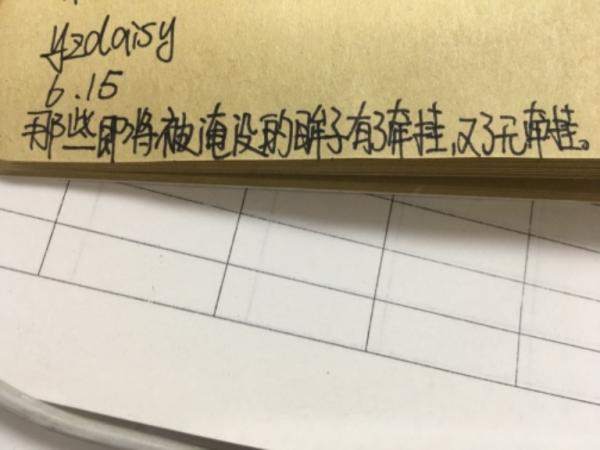 yzdaisy
6.15
那些即将被淹没的眸子有了牵挂,又了无牵挂。